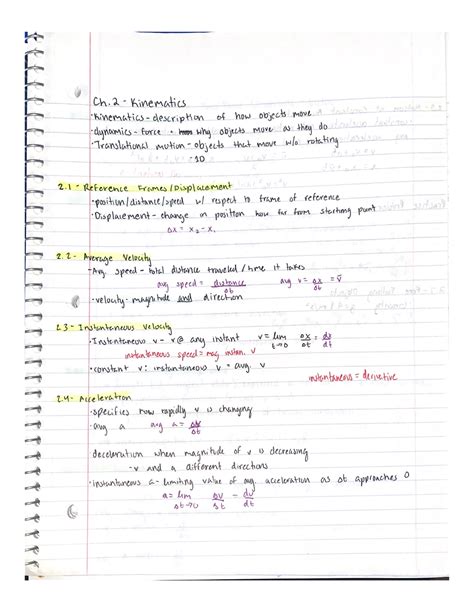 Ch. 2 - Kinematics
·Kinematics - description of how objects move
·dynamics - force + why objects move as they do
·Translational motion - objects that move w/o rotating
-1D
2.1 - Reference Frames/Displacement
·position/distance/speed w/ respect to frame of reference
·Displacement - change in position how far from starting point
Δx = x₂ - x₁
2.2 - Average Velocity
·Avg. speed - total distance traveled / time it takes
avg speed = distance/Δt avg v = Δx/Δt = v̄
·velocity - magnitude and direction
2.3 - Instantaneous Velocity
·Instantaneous v - v @ any instant v = lim t→0 Δx/Δt = dx/dt
instantaneous speed = mag. instan. v
·constant v: instantaneous v = avg. v
instantaneous = derivative
2.4 - Acceleration
·specifies how rapidly v is changing
·avg a avg a = Δv/Δt
deceleration when magnitude of v is decreasing
-v and a different directions
·instantaneous a - limiting value of avg. acceleration as Δt approaches 0
a = lim Δt→0 Δv/Δt = dv/dt